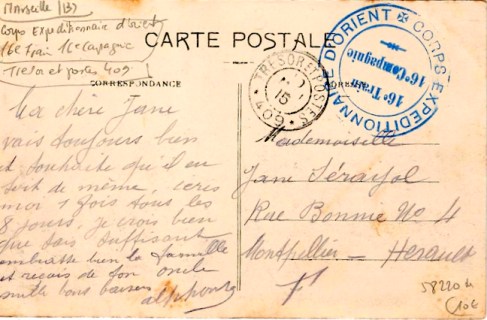 Marseille 1B7
Corps Expeditionnaire d'orient
16e Train 16e Campagnie
Tresor et postes 409
CARTE POSTALE
CORRESPONDANCE
TRESOR ET POSTES
15
409
CORPS EXPEDITIONNAIRE D'ORIENT
16e Train
16e Compagnie
Ma chere Jane
vais toujours bien
et souhaite qu'il en
soit de même, ecris
moi 1 fois tous les
8 jours. Je crois bien
que sais suffisant
embrasse bien la famille
et recois de ton oncle
mille bons baisers
alphonse
Mademoiselle
Jane Sérayol
Rue Bonne No 4
Montpellier - Herault
58220
10€